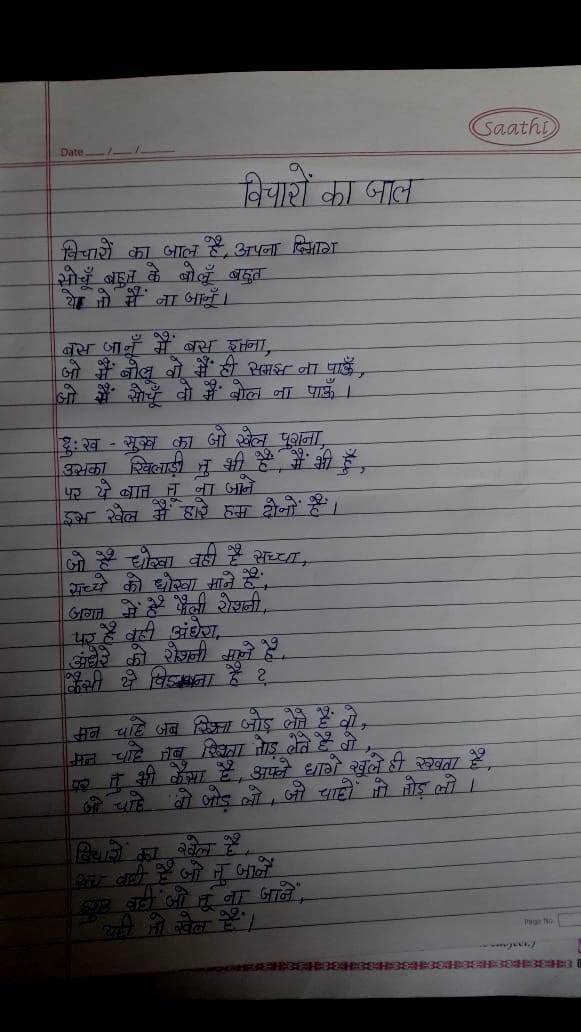 saathi
Date __/__/____
विचारों का जाल
विचारों का जाल है, अपना दिमाग
सोचूँ बहुत के बोलूँ बहुत
ये तो मैं ना जानूँ।
बस जानूँ मैं बस इतना,
जो मैं बोलू वो मैं ही समझ ना पाऊँ,
जो मैं सोचूँ वो मैं बोल ना पाऊँ।
दुःख - सुख का जो खेल पुराना,
उसका खिलाड़ी तु भी है, मैं भी हूँ,
पर ये बात तू ना जाने
इस खेल में हारे हम दोनों हैं।
जो है धोखा वही है सच्चा,
सच्चे को धोखा माने हैं,
जगत में है फैली रोशनी,
पर है वही अंधेरा,
अंधेरे को रोशनी माने है,
कैसी ये विडम्बना है ?
मन चाहे जब रिश्ता जोड़ लेते हैं वो,
मन चाहे तब रिश्ता तोड़ लेते है वो,
पर तु भी कैसा है, अपने धागे खुले ही रखता है,
जो चाहे वो जोड़ लो, जो चाहों तो तोड़ लो।
विचारों का खेल है,
सच वही है जो तु जाने
वही जो तू ना जाने,
यही तो खेल है।
Page No.